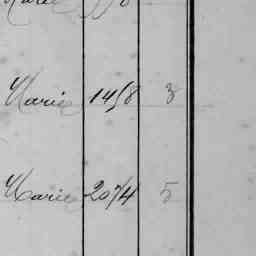 Marie 1458 3
Marie 2074 5